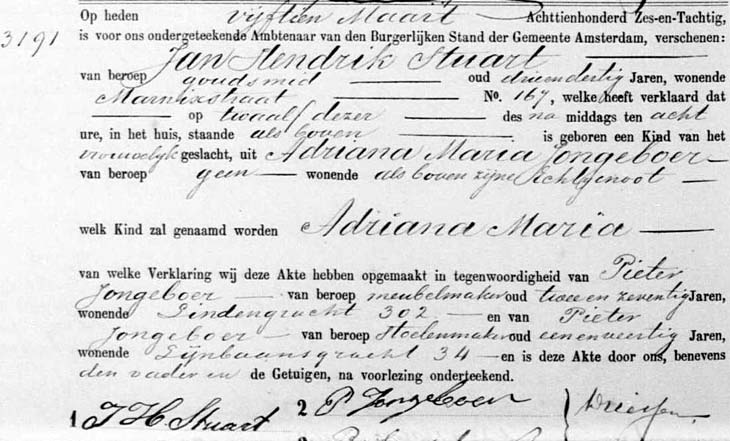 Op heden vijftien Maart Achttienhonderd Zes-en-Tachtig,
3191
is voor ons ondergeteekende Ambtenaar van den Burgerlijken Stand der Gemeente Amsterdam, verschenen:
Jan Hendrik Stuart
van beroep goudsmid oud drieendertig Jaren, wonende
Marnixstraat No. 167, welke heeft verklaard dat
op twaalf dezer des na middags ten acht
ure, in het huis, staande als boven is geboren een Kind van het
vrouwelijk geslacht, uit Adriana Maria Jongeboer
van beroep geen wonende als boven zijne Echtgenoot
welk Kind zal genaamd worden Adriana Maria
van welke Verklaring wij deze Akte hebben opgemaakt in tegenwoordigheid van Pieter
Jongeboer van beroep meubelmaker oud twee en zeventig Jaren,
wonende Lindengracht 302 en van Pieter
Jongeboer van beroep Stoelenmaker oud eenenveertig Jaren,
wonende Lijnbaansgracht 34 en is deze Akte door ons, benevens
den vader en de Getuigen, na voorlezing onderteekend.
1 J H Stuart 2 P Jongeboer
3